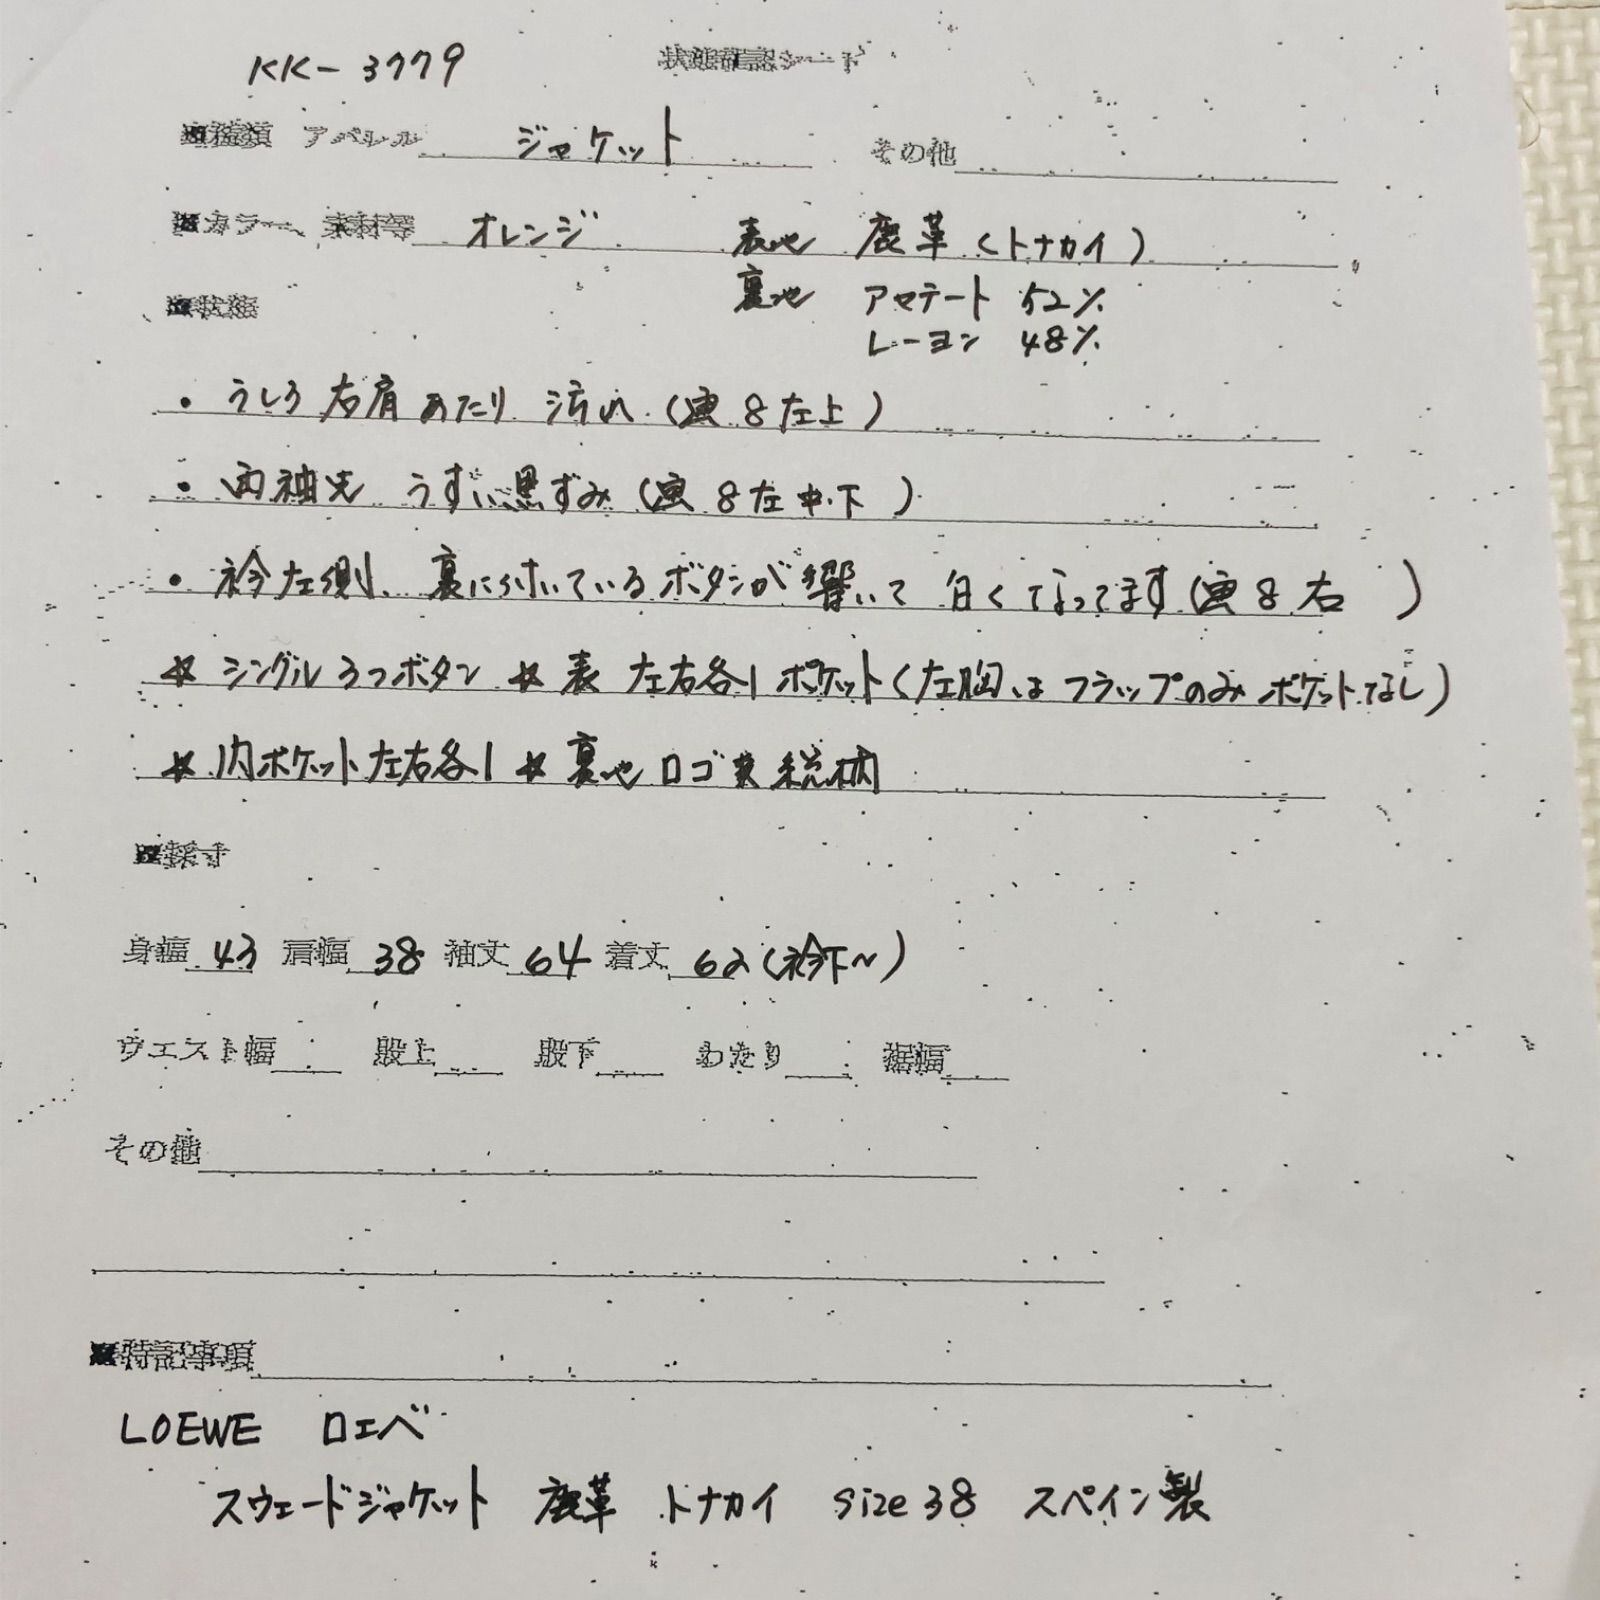 KK-3779 状態確認シート
■種類 アパレル ジャケット その他
■カラー、素材等 オレンジ 表地 鹿革（トナカイ）
裏地 アセテート 52%
レーヨン 48%
■状態
・うしろ右肩あたり 汚れ（画8左上）
・両袖先 うすい黒ずみ（画8左中・下）
・衿左側、裏に付いているボタンが響いて白くなってます（画8右）
☆シングル3つボタン ☆表 左右各1ポケット（左胸はフラップのみポケットなし）
☆内ポケット左右各1 ☆裏地ロゴ 総柄
■採寸
身幅 43 肩幅 38 袖丈 64 着丈 62（衿下〜）
ウエスト幅 股上 股下 わたり 裾幅
その他
■特記事項
LOEWE ロエベ
スウェードジャケット 鹿革 トナカイ size38 スペイン製